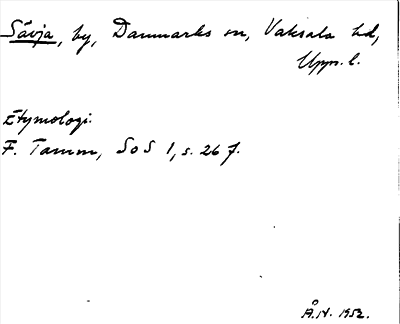 Sävja, by, Danmarks sn, Vaksala hd,
Upps. l.
Etymologi.
F. Tamm, SoS 1, s. 26 f.
Å.N. 1952.